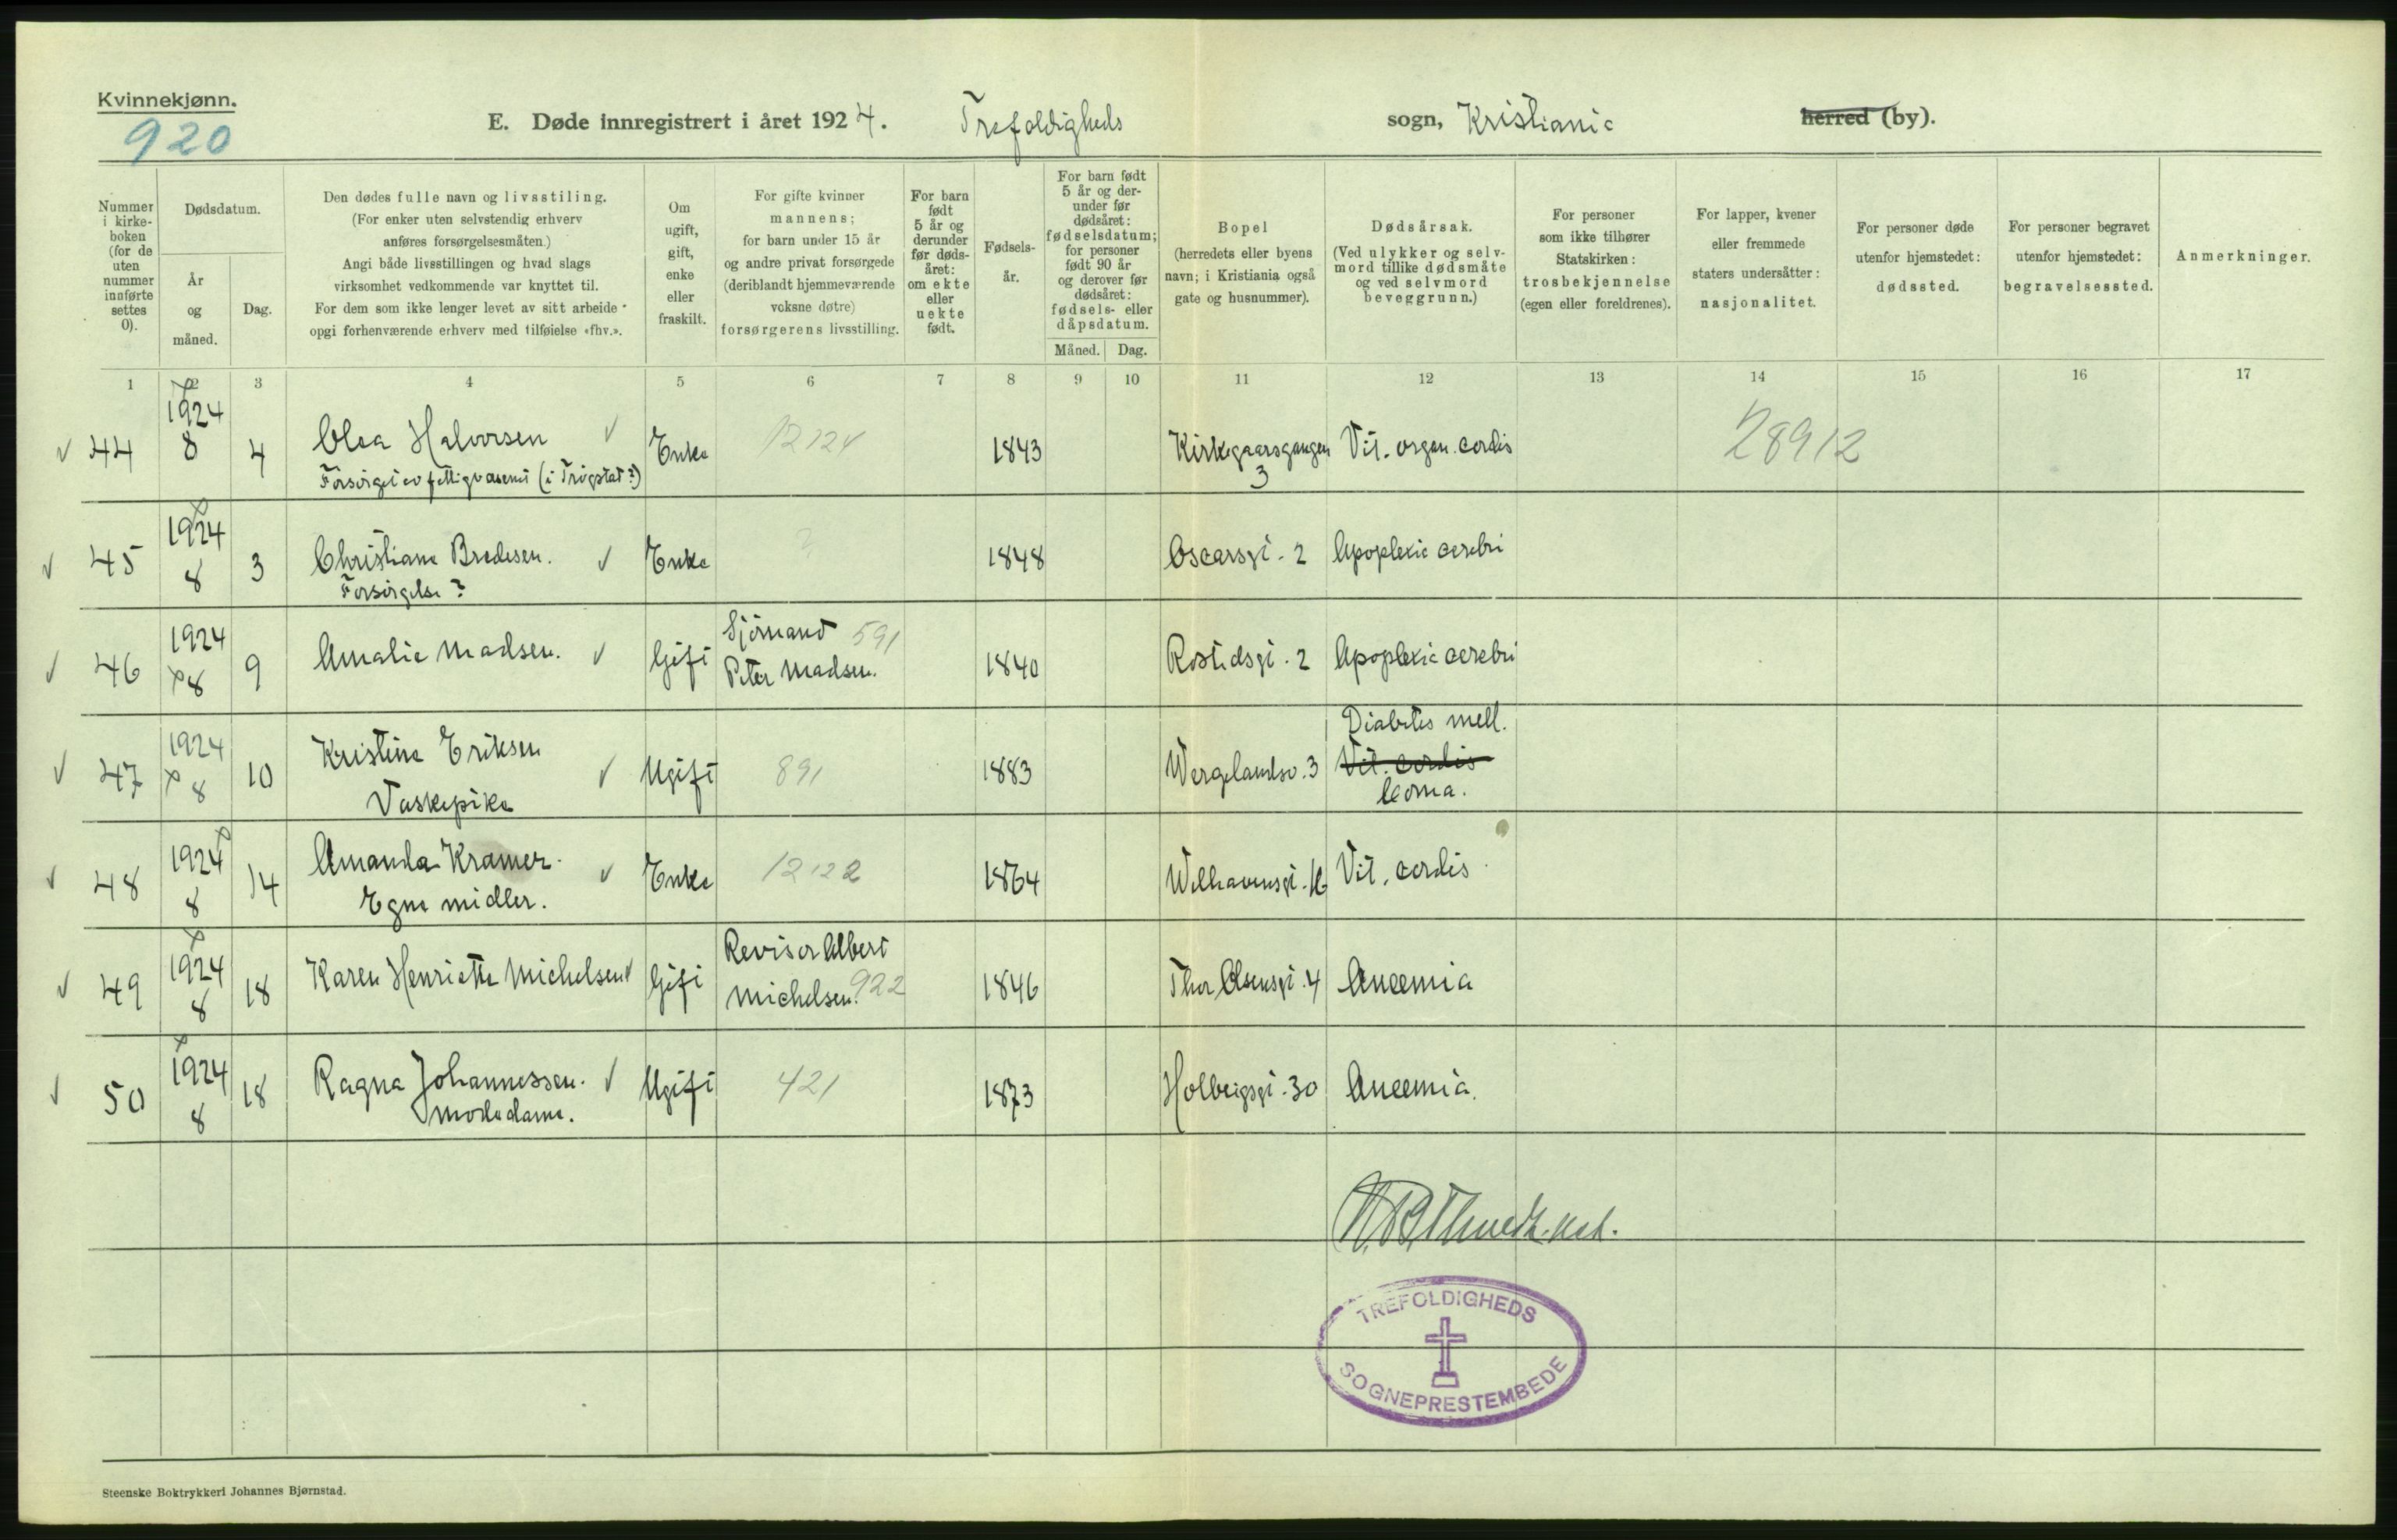 Kvinnekjønn.
920
E. Døde innregistrert i året 1924. Trefoldigheds sogn, Kristiania herred (by).
Nummer i kirkeboken (for de uten nummer innførte settes 0).
Dødsdatum.
År og måned.
Dag.
Den dødes fulle navn og livsstiling.
(For enker uten selvstendig erhverv
anføres forsørgelsesmåten.)
Angi både livsstillingen og hvad slags
virksomhet vedkommende var knyttet til.
For dem som ikke lenger levet av sitt arbeide
opgi forhenværende erhverv med tilføielse «fhv.».
Om ugift, gift, enke eller fraskilt.
For gifte kvinner
mannens;
for barn under 15 år
og andre privat forsørgede
(deriblandt hjemmeværende
voksne døtre)
forsørgerens livsstilling.
For barn født 5 år og derunder før dødsåret: om ekte eller uekte født.
Fødselsår.
For barn født 5 år og derunder før dødsåret: fødselsdatum; for personer født 90 år og derover før dødsåret: fødsels- eller dåpsdatum.
Måned. Dag.
Bopel
(herredets eller byens
navn; i Kristiania også
gate og husnummer).
Dødsårsak.
(Ved ulykker og selvmord tillike dødsmåte
og ved selvmord
beveggrunn.)
For personer
som ikke tilhører
Statskirken:
trosbekjennelse
(egen eller foreldrenes).
For lapper, kvener
eller fremmede
staters undersåtter:
nasjonalitet.
For personer døde
utenfor hjemstedet:
dødssted.
For personer begravet
utenfor hjemstedet:
begravelsessted.
Anmerkninger.
1 2 3 4 5 6 7 8 9 10 11 12 13 14 15 16 17
44 1924 8 4 Olea Halvorsen Enke 1843 Kirkegaarsgangen 3 Vit. organ. cordis 28912
Forsørget av fattigvæsenet (i Trøgstad?)
45 1924 8 3 Christiane Bredesen. Enke ? 1848 Oscarsgt. 2 Apoplexia cerebri
Forsørgelse?
46 1924 8 9 Amalie Madsen. Gift Sjømand 591 Peter Madsen. 1840 Rostedsgt. 2 Apoplexia cerebri
47 1924 8 10 Kristine Eriksen Ugift 891 1883 Wergelandsv. 3 Diabetes mell.
Vit. cordis
Vaskepike
Coma.
48 1924 8 14 Amanda Kramer. Enke 12122 1864 Welhavensgt. 16 Vit. cordis
Egne midler.
49 1924 8 18 Karen Henriette Michelsen Gift Revisor Albert Michelsen. 922 1846 Thor Olsensgt. 4 Anæmia
50 1924 8 18 Ragna Johannessen. Ugift 421 1873 Holbergsgt. 30 Anæmia.
Modedame.
TREFOLDIGHEDS
SOGNEPRESTEMBEDE
Steenske Boktrykkeri Johannes Bjørnstad.